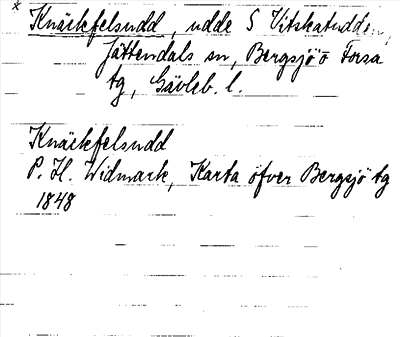 * Knäckfelsudd, udde S Vitskatudden,
Jättendals sn, Bergsjö o Forsa
tg, Gävleb. l.
Knäckfelsudd
P. H. Widmark, Karta öfver Bergsjö tg
1848